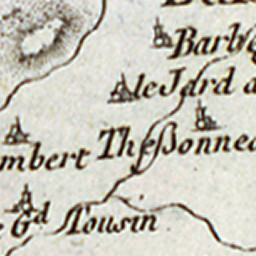 Barb
le Jard
mbert Theßonnea
Gd Tousin